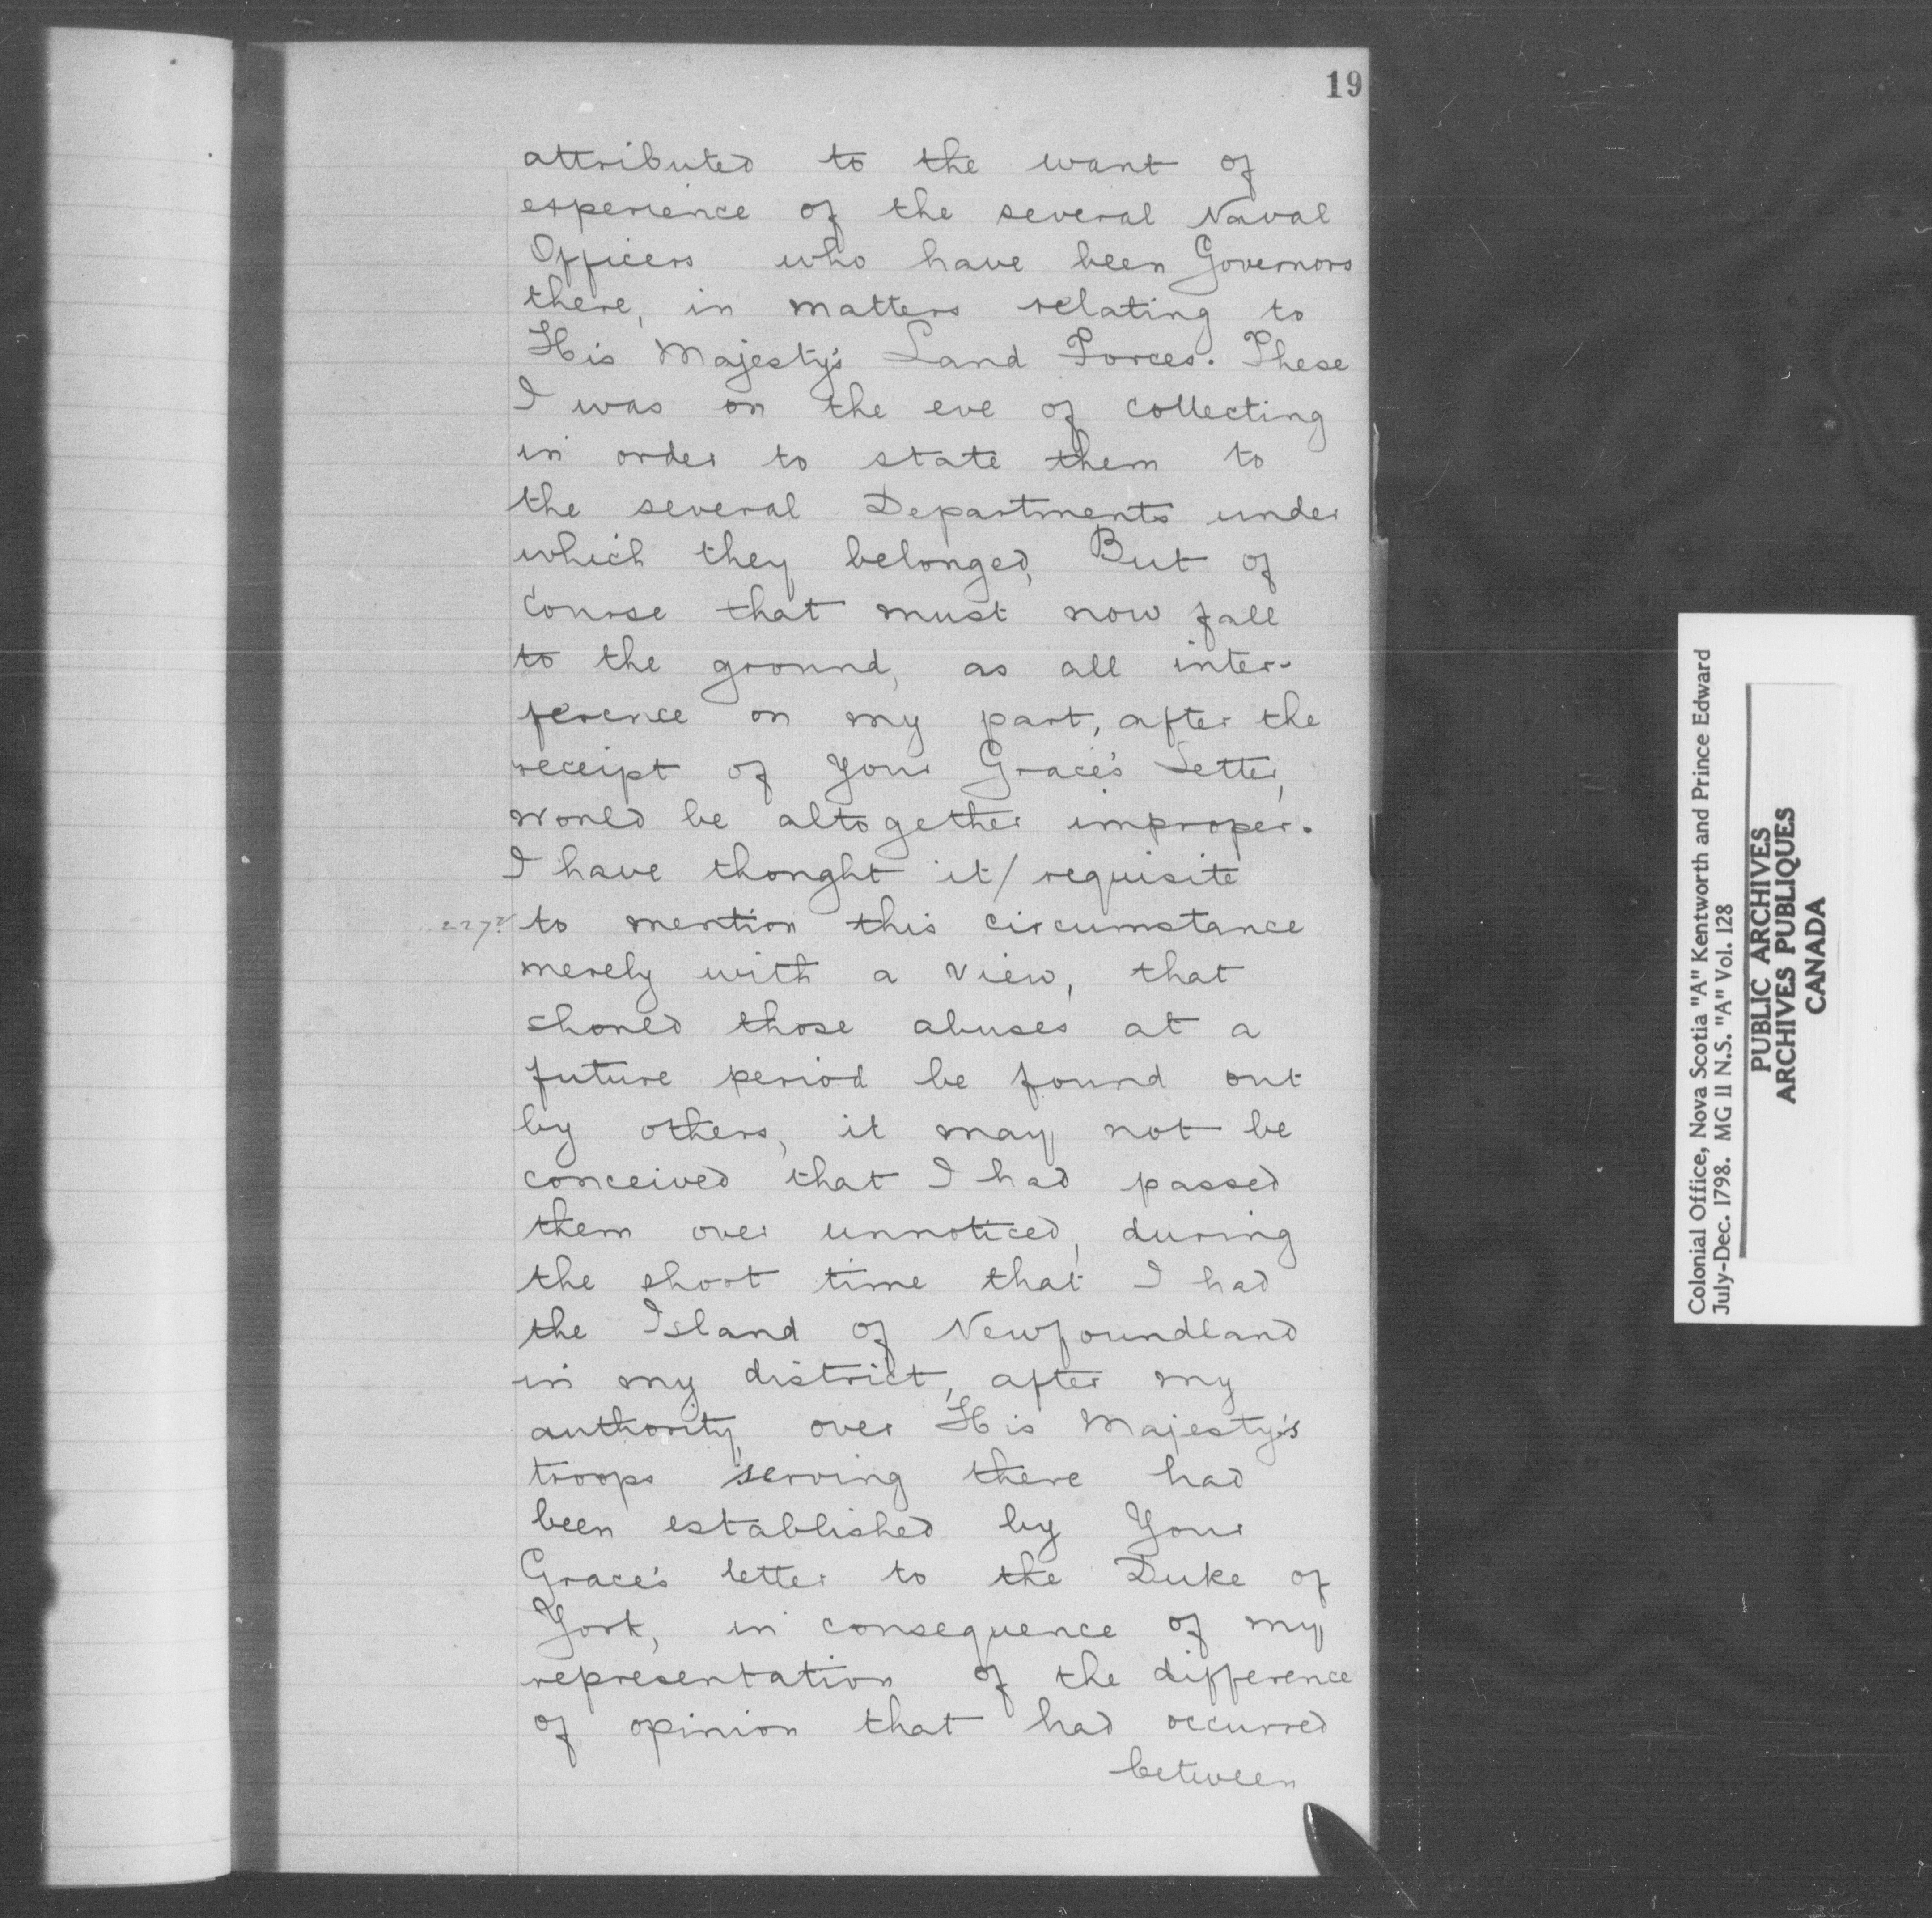 19
attributed to the want of
experience of the several Naval
Officers who have been Governors
there, in matters relating to
His Majesty's Land Forces. These
I was on the eve of collecting
in order to state them to
the several Departments under
which they belonged, But of
Course that must now fall
to the ground, as all inter-
ference on my part, after the
receipt of Your Grace's Letter,
would be altogether improper.
I have thought it/ requisite
to mention this circumstance
merely with a view, that
should those abuses at a
future period be found out
by others, it may not be
conceived that I had passed
them over unnoticed, during
the short time that I had
the Island of Newfoundland
in my district, after my
authority over His Majesty's
troops serving there had
been established by Your
Grace's letter to the Duke of
York, in consequence of my
representation of the difference
of opinion that had occurred
between
Colonial Office, Nova Scotia "A" Kentworth and Prince Edward
July-Dec. 1798. MG 11 N.S. "A" Vol. 128
PUBLIC ARCHIVES
ARCHIVES PUBLIQUES
CANADA